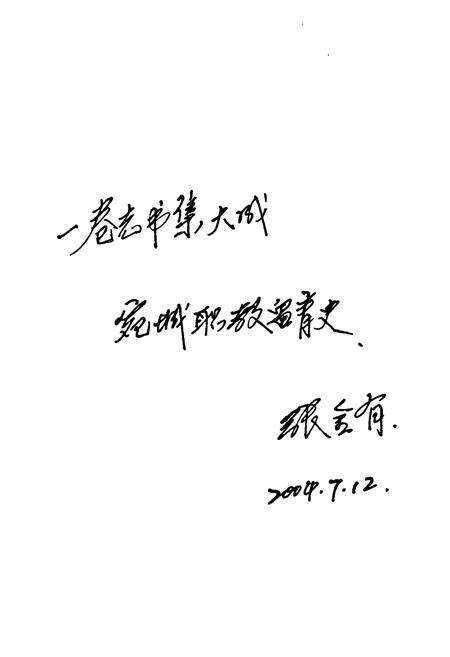 一卷志书集大成
宛城职教留青史、
张金有.
2004.7.12.